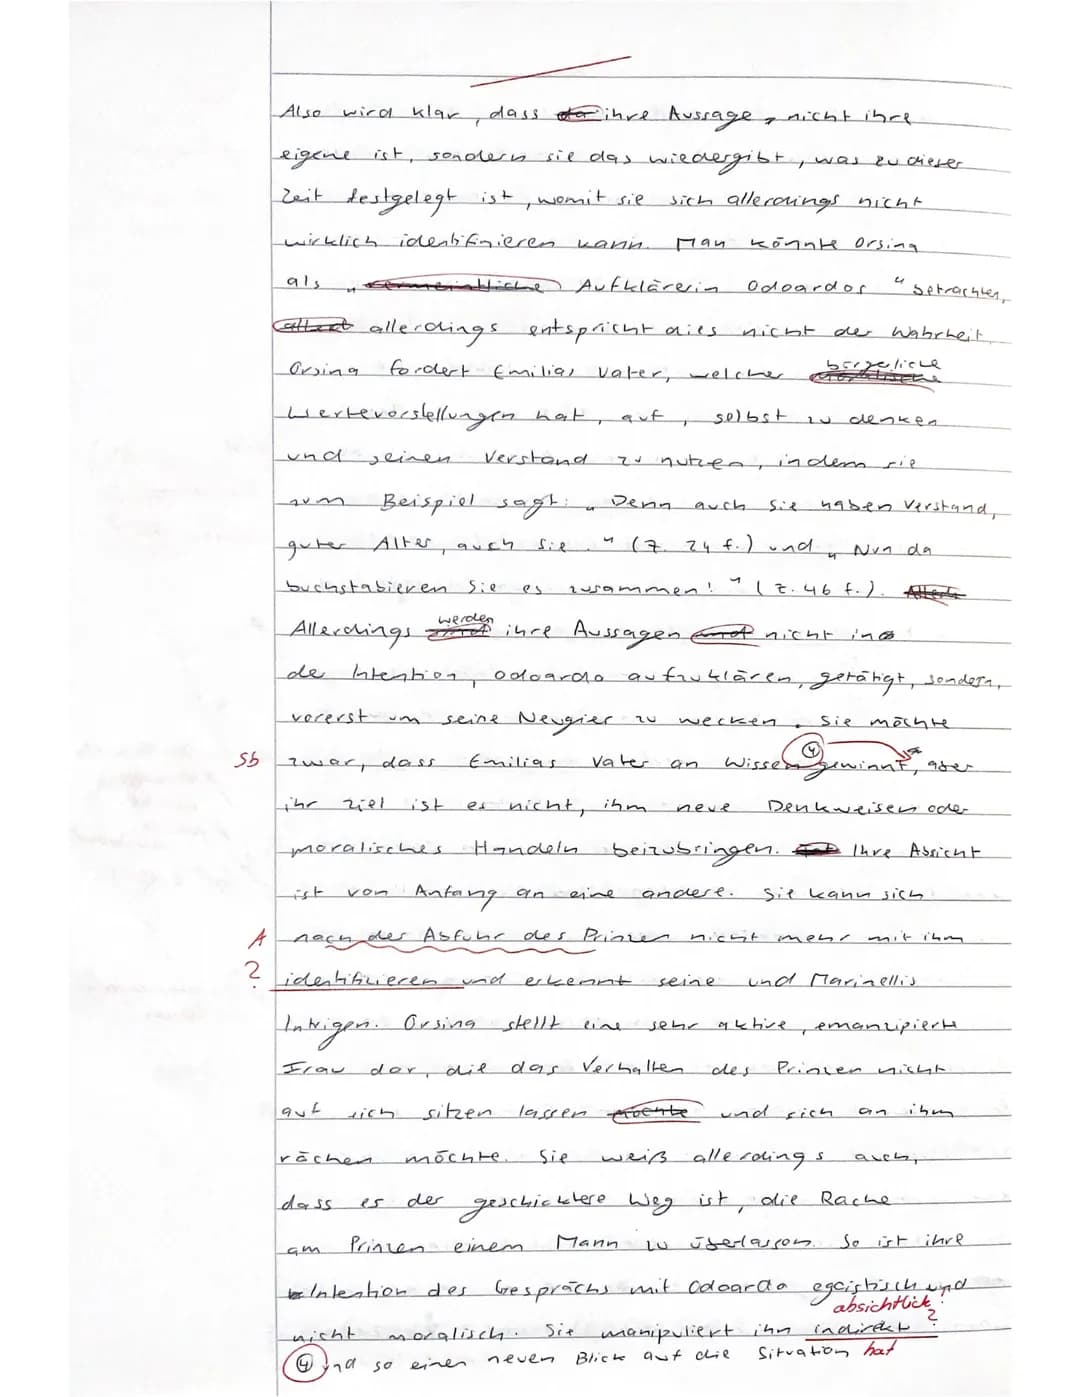 Also wird klar, dass da ihre Aussage, nicht ihre
eigene ist, sondern sie das wiedergibt, was zu dieser
Zeit festgelegt ist, womit sie sich allerdings nicht
wirklich identifizieren kann. Man könnte Orsina
als „vermeintliche Aufklärerin Odoardos" betrachten,
allerdings entspricht dies nicht der Wahrheit.
bürgerliche
Orsina fordert Emilias Vater, welcher moralische
Wertevorstellungen hat, auf, selbst zu denken
und seinen Verstand zu nutzen, indem sie
zum Beispiel sagt: „Denn auch Sie haben Verstand,
guter Alter, auch Sie." (Z. 24 f.) und „Nun da
buchstabieren Sie es zusammen!" (Z. 46 f.). Allerd
werden
Allerdings sind ihre Aussagen nicht in
de Intention, Odoardo aufzuklären, getätigt, sondern,
vorerst um seine Neugier zu wecken. Sie möchte
Sb zwar, dass Emilias Vater an Wissen (4) gewinnt, aber
ihr Ziel ist es nicht, ihm neue Denkweisen oder
moralisches Handeln beizubringen. Ihre Absicht
ist von Anfang an eine andere. Sie kann sich
A nach der Abfuhr des Prinzen nicht mehr mit ihm
? identifizieren und erkennt seine und Marinellis
Intrigen. Orsina stellt eine sehr aktive, emanzipierte
Frau dar, die das Verhalten des Prinzen nicht
auf sich sitzen lassen möchte und sich an ihm
rächen möchte. Sie weiß allerdings auch,
dass es der geschicktere Weg ist, die Rache
am Prinzen einem Mann zu überlassen. So ist ihre
Intention des Gesprächs mit Odoardo egoistisch und
absichtlich?
nicht moralisch. Sie manipuliert ihn indirekt
(4) und so einen neuen Blick auf die Situation hat